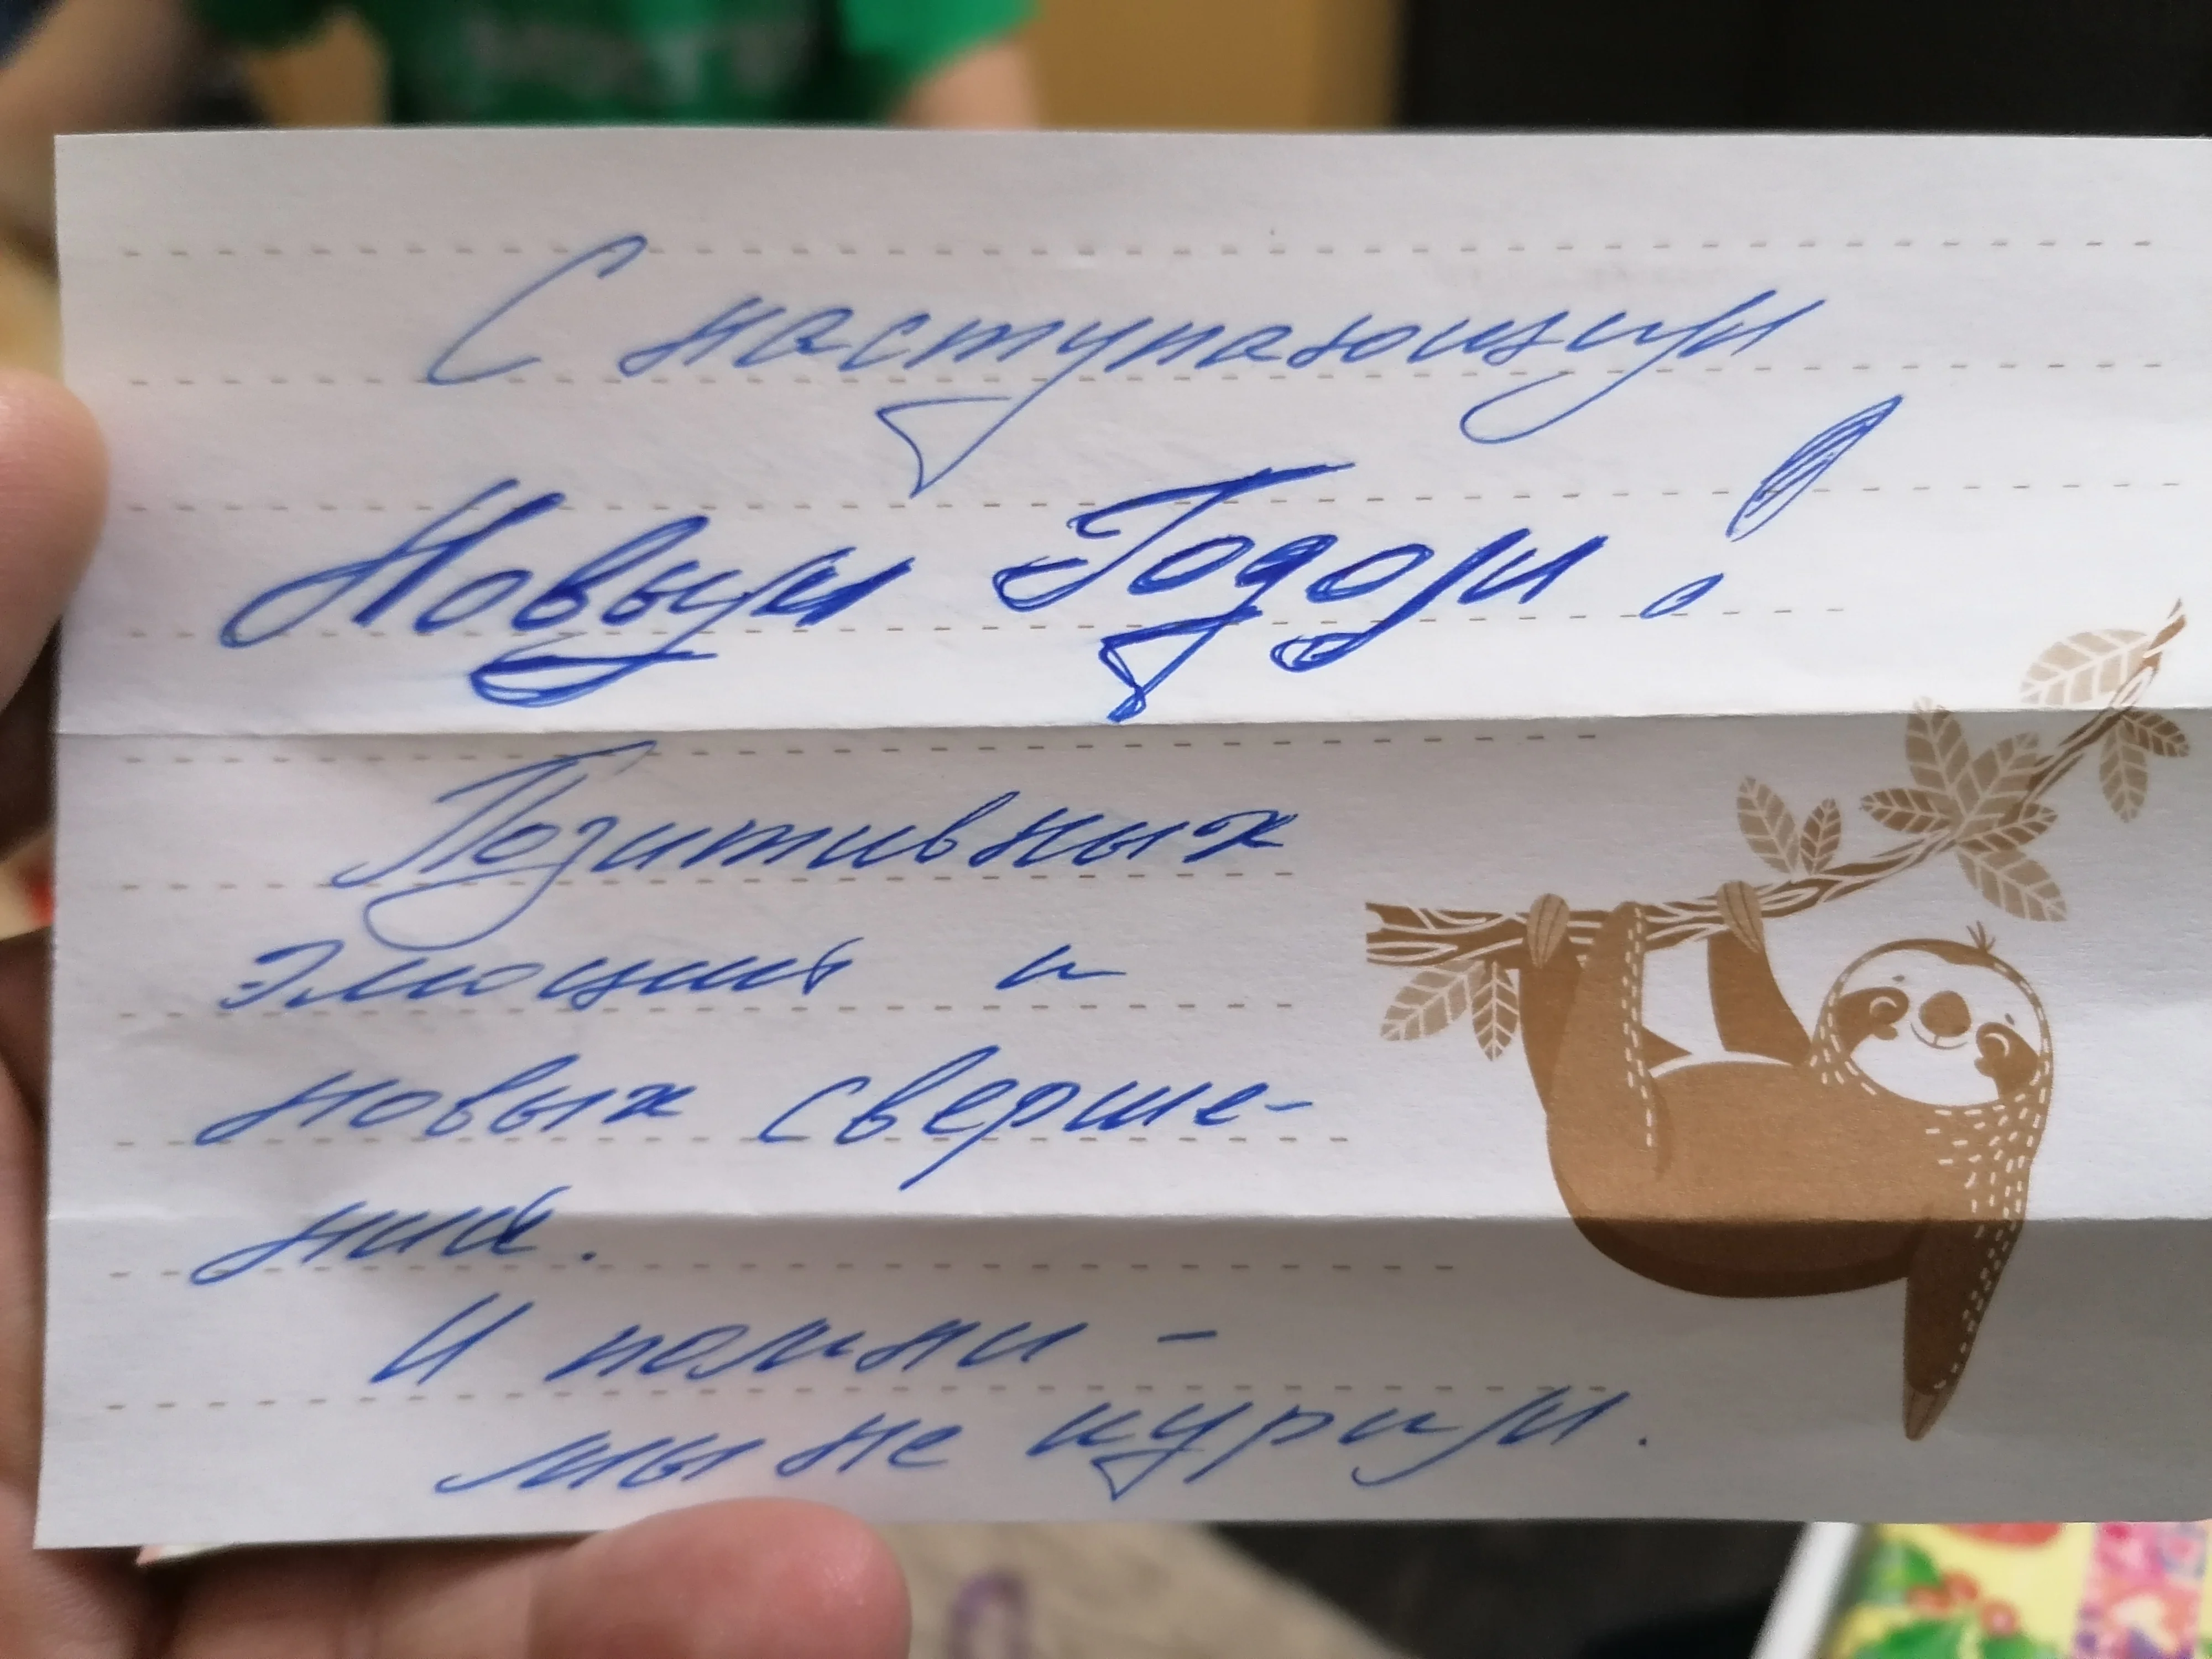 С наступающим
Новым Годом!
Позитивных
эмоций и
новых сверше-
ний.
И помни -
мы не курим.